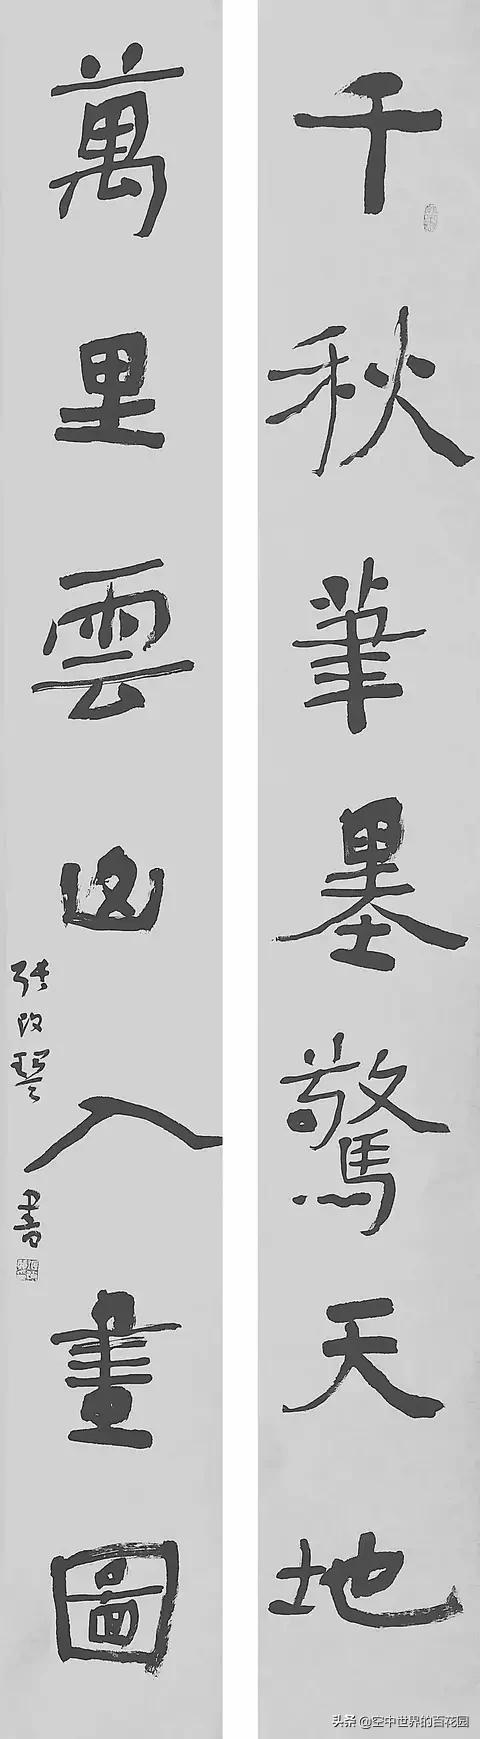 千秋筆墨驚天地
萬里雲山入畫圖
张改琴
書
头条 @空中世界的百花园